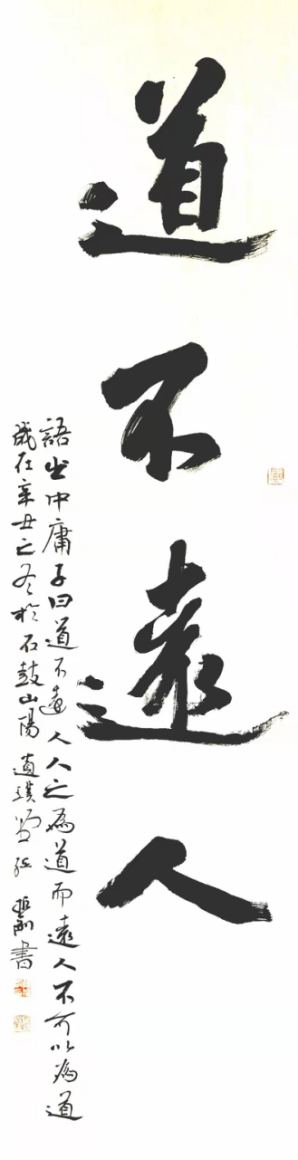 道不遠人
語出中庸子曰道不遠人人之為道而遠人不可以為道
歲在辛丑之冬於石鼓山陽 書